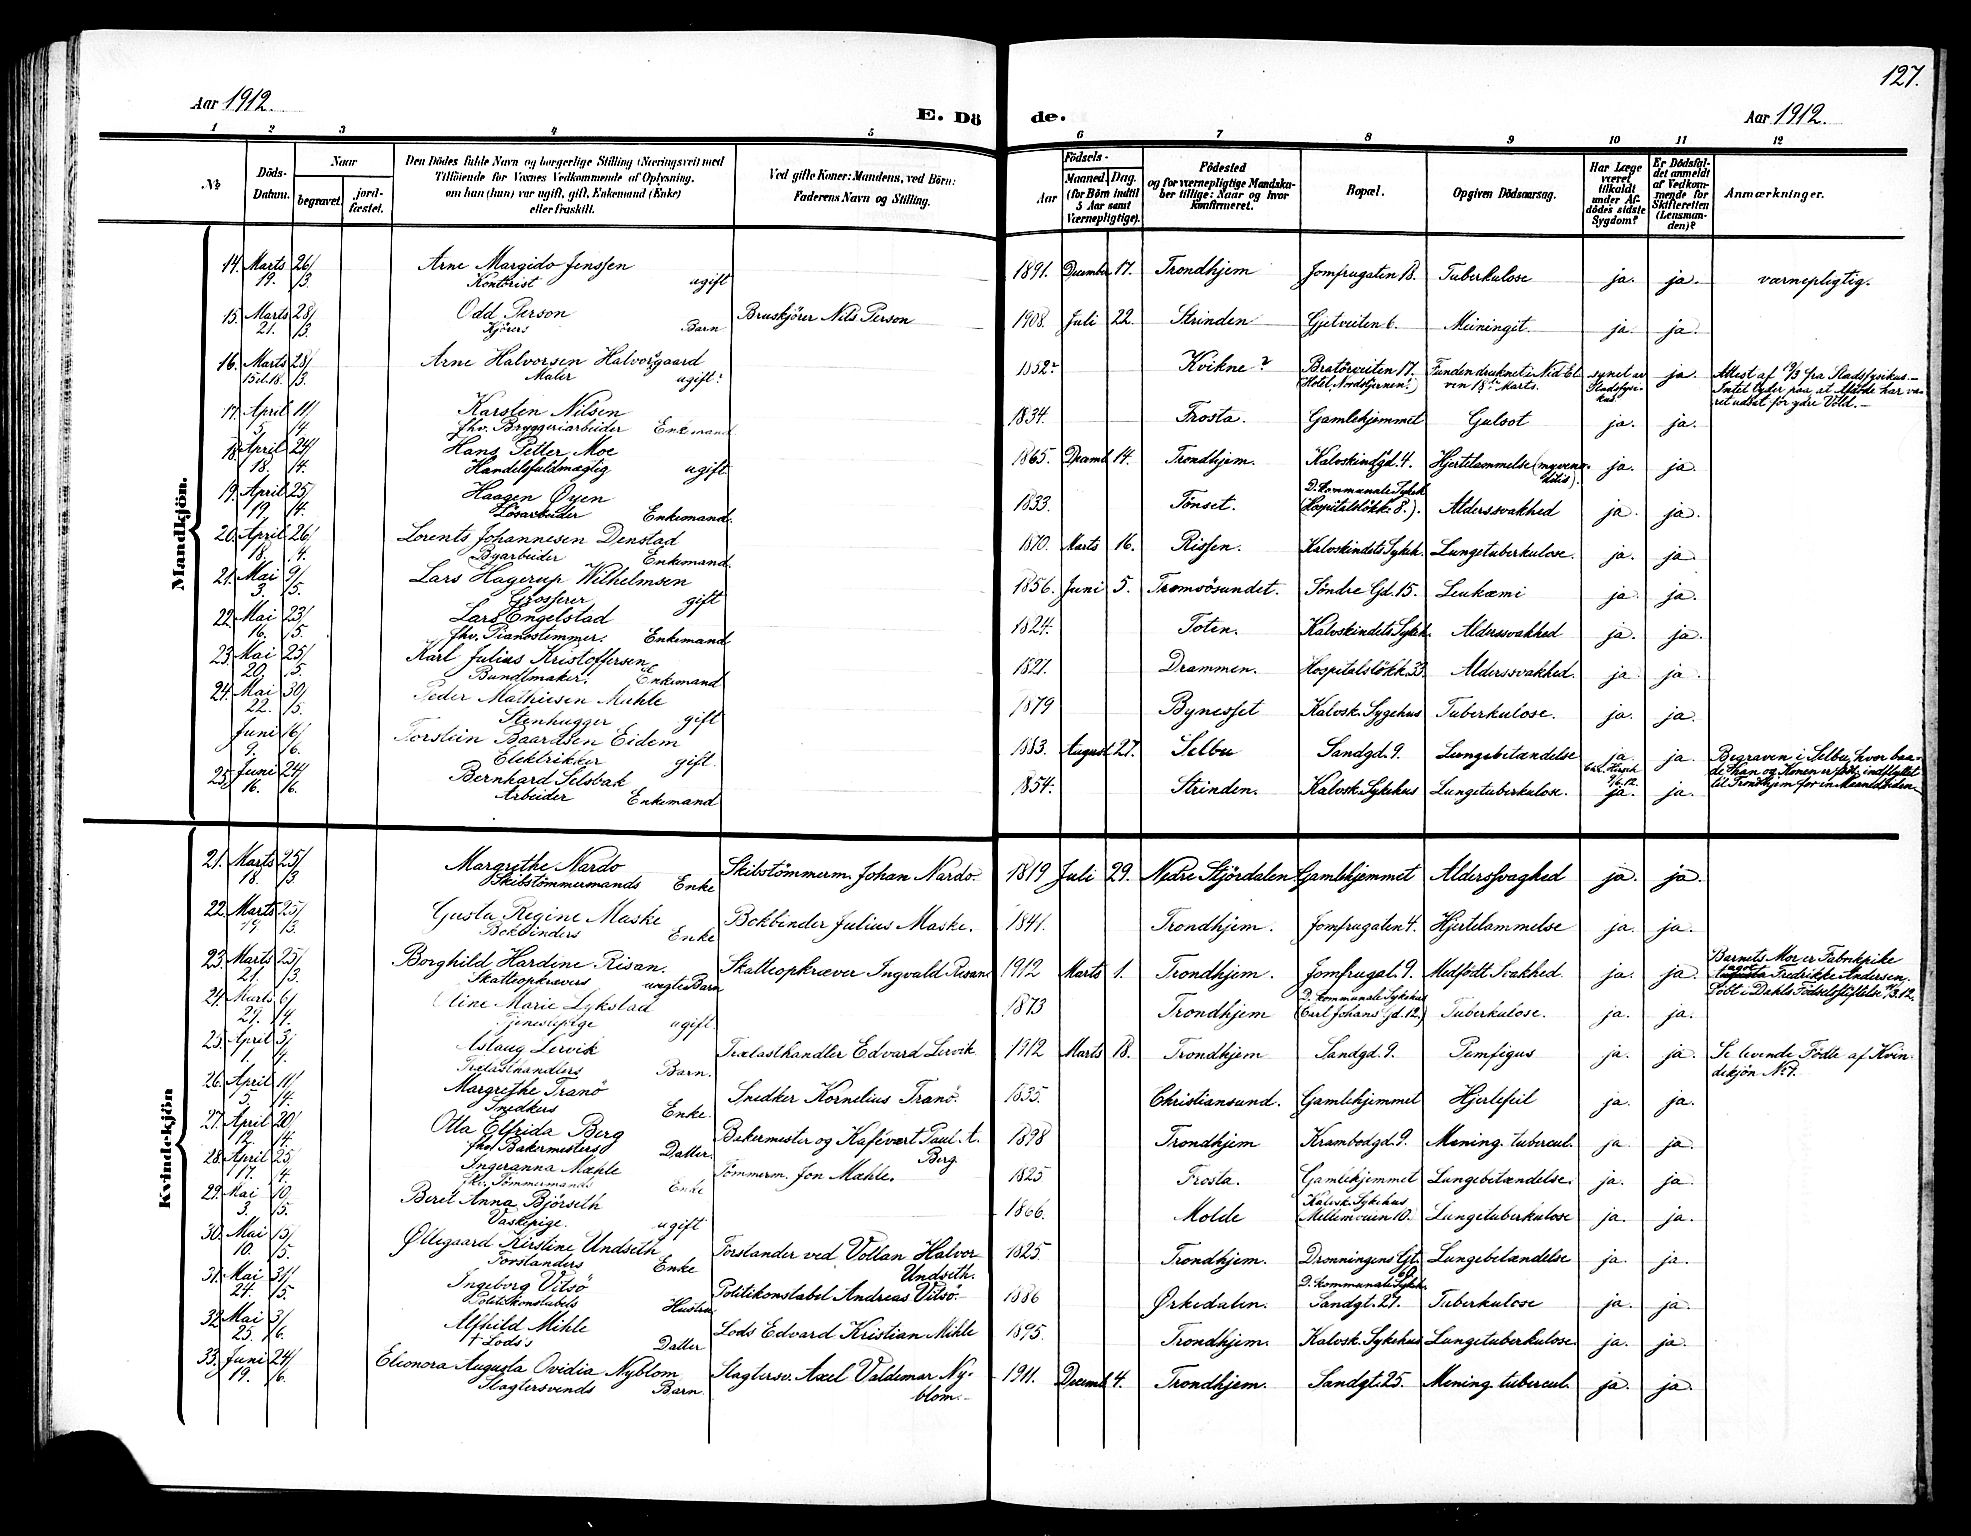 127.
Aar 1912. E. Dö de. Aar 1912.
1 2 3 4 5 6 7 8 9 10 11 12
No. Döds-Datum. Naar begravet. jord-fæstet. Den Dödes fulde Navn og borgerlige Stilling (Næringsvei) med Tilföiende for Voxnes Vedkommende af Oplysning, om han (hun) var ugift, gift, Enkemand (Enke) eller fraskilt. Ved gifte Koner: Mandens, ved Börn: Faderens Navn og Stilling. Födsels- Aar Maaned. Dag. (for Börn indtil 5 Aar samt Værnepligtige). Födested og for værnepligtige Mandskaber tillige: Naar og hvor konfirmeret. Bopæl. Opgiven Dödsaarsag. Har Læge været tilkaldt under Afdödes sidste Sygdom? Er Dödsfaldet anmeldt af Vedkommende for Skifteretten (Lensmanden)? Anmærkninger.
Mandkjön.
14. Marts 19. 26/3. Arne Margido Jenssen Kontorist ugift 1891. December 17. Trondhjem Jomfrugaten 18. Tuberkulose ja. ja. værnepligtig.
15. Marts 21. 28/3. Odd Person Kjörers Barn Bruskjörer Nils Person 1908. Juli 22. Strinden Gjetveiten 6. Meiningit. ja ja.
16. Marts 15 el. 18. 23/3. Arne Halvorsen Halvorsgaard Maler ugift? 1852? Kvikne? Bratörveiten 17. (Hotel Nordstjernen?) Funden druknet i Nidelven 18de Marts. synet av Stadsfysikus. ja Attest af 19/3 fra Stadsfysikus.— Intet tyder paa, at Afdöde har været udsat for ydre Vold.—
17. April 5. 11/4. Karsten Nilsen fhv. Bryggeriarbeider Enkemand 1834. Frosta. Gamlehjemmet Gulsot ja. ja.
18. April 18. 24/4. Hans Petter Moe Handelsfuldmægtig ugift 1865. Decemb 14. Trondhjem. Kalvskindgd. 4. Hjertelammelse ja. ja.
19. April 19. 25/4. Haagen Öyen Lösarbeider Enkemand. 1833. Tönset. D. kommunale Sykeh (Hospitalslökk. 8.) Alderssvakhed ja. ja.
20. April 18. 26/4. Lorents Johannesen Denstad Byarbeider Enkemand. 1870. Marts 16. Rissen. Kalvskindets Sykeh. Lungetuberkulose. ja. ja.
21. Mai 3. 9/5. Lars Hagerup Wilhelmsen Grosserer gift 1856. Juni 5. Tromsösundet. Söndre Gd. 15. Leukæmi ja. ja.
22. Mai 16. 23/5. Lars Engelstad fhv. Pianostemmer. Enkemand 1824. Toten. Kalvskindets Sykeh. Alderssvakhed ja. ja.
23. Mai 20. 25/5. Karl Julius Kristoffersen Bundtmaker. Enkemand 1827. Drammen. Hospitalslökk. 33. Alderssvakhed. ja. ja.
24. Mai 22. 30/5. Peder Mathiesen Muhle Stenhugger gift 1879 Bynesset Kalvsk. Sygehus Tuberkulose. ja. ja.
Juni 9. 16/6. Torstein Baardsen Eidem Elektrikker gift. 1883. August 27. Selbu Sandgd. 9. Lungebetændelse ja ja. Begraven i Selbu, hvor baade Han og Konen er födt; indflyttet til Trondhjem for en Maaned siden.
25. Juni 16. 24/6. Bernhard Selsbak Arbeider Enkemand 1854. Strinden. Kalvsk. Sykehus Lungetuberkulose. ja. ja.
Kvindekjön
21. Marts 18. 25/3. Margrethe Nardo Skibstömmermands Enke Skibstömmerm. Johan Nardo. 1819 Juli 29. Nedre Stjördalen Gamlehjemmet Alderssvaghed ja. ja.
22. Marts 19 25/3. Gusta Regine Maske Bokbinders Enke Bokbinder Julius Maske. 1841. Trondhjem. Jomfrugaten 4. Hjertelammelse ja. ja.
23. Marts 21. 25/3. Borghild Hardine Risan. Skatteopkrævers uægte Barn Skatteopkræver Ingvald Risan 1912 Marts 1. Trondhjem. Jomfrugat. 9. Medfödt Svakhed. ja. ja Barnets Mor er Fabrikpike Fredrikke Andersen. Föbt i Dahls Födselsstiftelse 12.
24. Marts 29. 6/4. Oline Marie Lykstad Tjenestepige ugift. 1873 Trondhjem D. kommunale Sykehus (Carl Johans gd. 12.) Tuberkulose. ja. ja.
25. April 1. 3/4. Aslaug Lervik Trælasthandlers Barn. Trælasthandler Edvard Lervik 1912 Marts 18. Trondhjem Sandgd. 9. Pemfigus ja. ja. Se levende Födte af Kvindekjön No 7.
26. April 5. 11/4. Margrethe Tranö Snedkers Enke. Snedker Kornelius Tranö. 1835. Christiansund. Gamlehjemmet Hjertefeil ja. ja.
27. April 12. 20/4. Otta Elfrida Berg fhv. Bakermesters Datter. Bakermester og Kafévært Paul A. Berg. 1898 Trondhjem Krambodgd. 9. Mening. tubercul. ja. ja.
28. April 17. 25/4. Ingeranna Mæhle fhv. Tömmermands Enke Tömmerm. Jon Mæhle. 1825 Frosta. Gamlehjemmet Lungebetændelse. ja. ja.
29. Mai 3. 10/5. Berit Anna Björseth Vaskepige. ugift 1866. Molde Kalvsk. Sykehus (Mellemveien 10.) Lungetuberkulose ja. ja.
30. Mai 10. 15/5. Ollegaard Kirstine Undseth Forstanders Enke Forstander ved Vollan Halvor Undseth. 1825. Trondhjem. Dronningens Gt. Lungebetændelse ja. ja.
31. Mai 24. 31/5. Ingeborg Vitsö Politikonstabels Hustru Politikonstabel Andreas Vitsö. 1886 Ørkedalen. D. kommunale Sykeh. Sandgt. 27. Tuberkulose ja. ja.
32. Mai 25. 3/6. Alfhild Mihle † Lods's Datter Lods Edvard Kristian Mihle 1895. Trondhjem. Kalvsk. Sykehus Lungetuberkulose. ja. ja.
33. Juni 19. 24/6. Eleonora Augusta Ovidia Nyblom Slagtersvends Barn Slagtersv. Axel Valdemar Nyblom.— 1911. Decemb 4. Trondhjem. Sandgt. 25. Mening. tubercul. ja. ja.